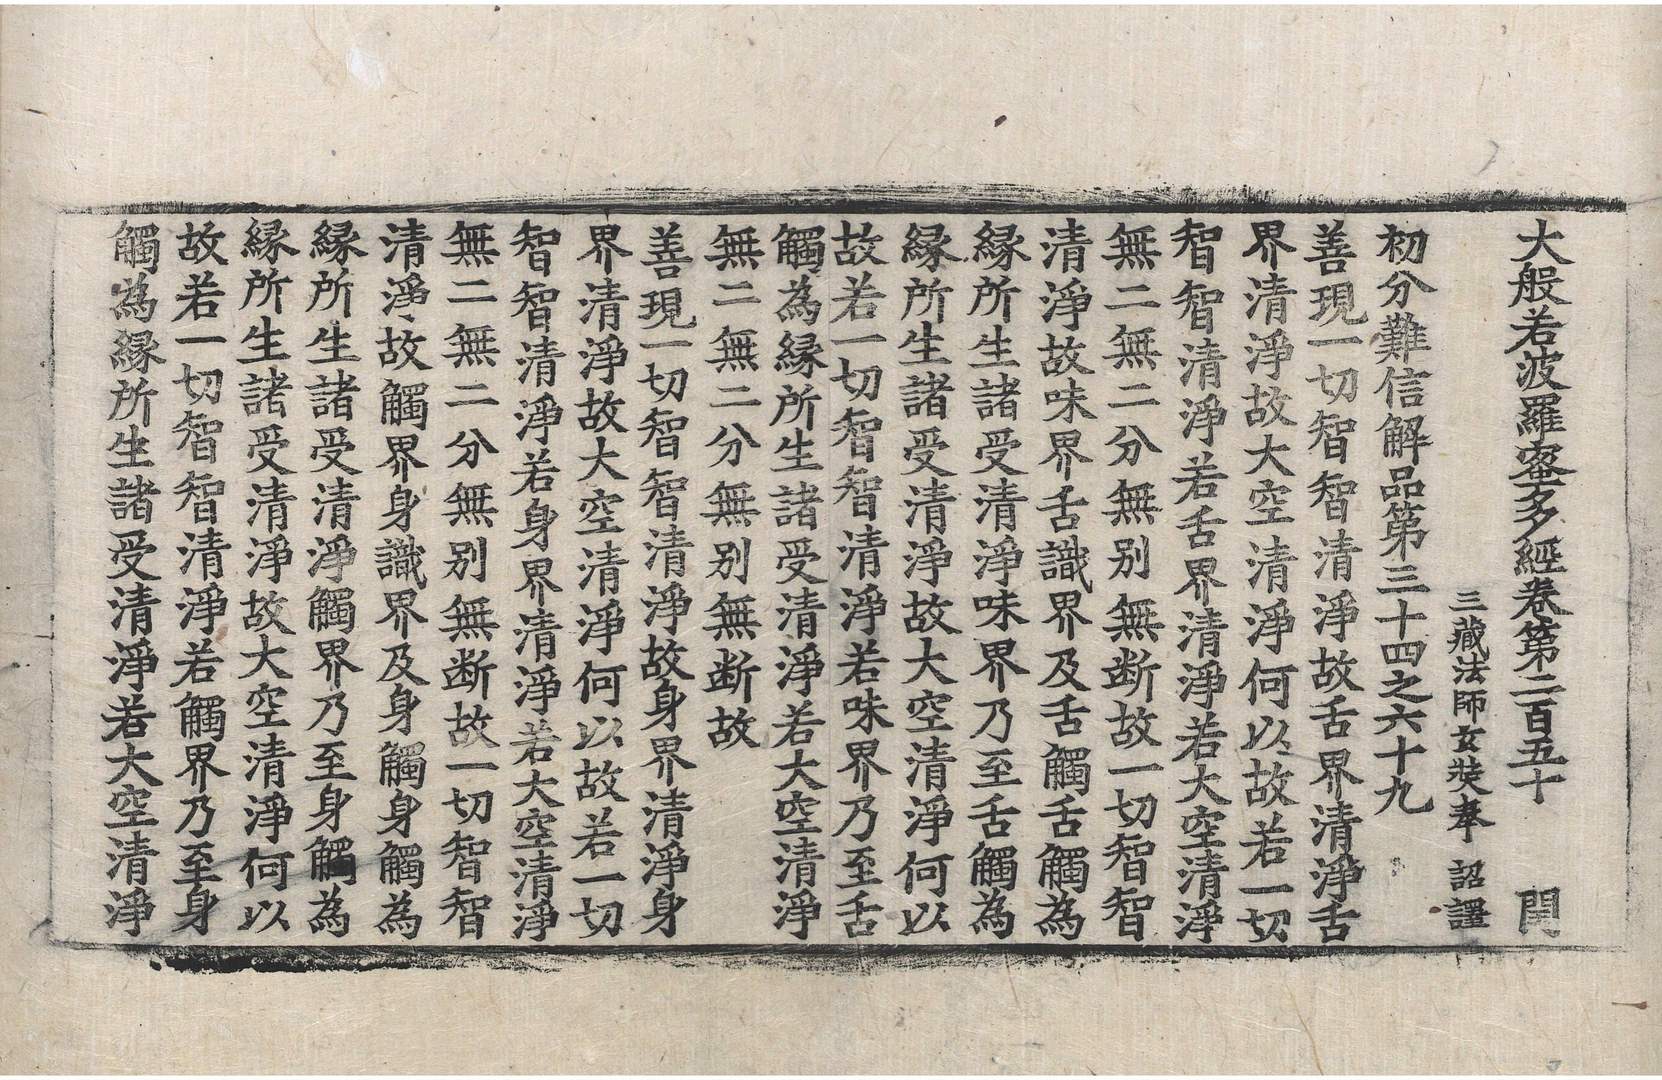 大般若波羅蜜多經卷第二百五十 閏
三藏法師玄奘奉 詔譯
初分難信解品第三十四之六十九
善現一切智智清淨故舌界清淨舌
界清淨故大空清淨何以故若一切
智智清淨若舌界清淨若大空清淨
無二無二分無别無断故一切智智
清淨故味界舌識界及舌觸舌觸為
緣所生諸受清淨味界乃至舌觸為
緣所生諸受清淨故大空清淨何以
故若一切智智清淨若味界乃至舌
觸為緣所生諸受清淨若大空清淨
無二無二分無别無断故
善現一切智智清淨故身界清淨身
界清淨故大空清淨何以故若一切
智智清淨若身界清淨若大空清淨
無二無二分無别無断故一切智智
清淨故觸界身識界及身觸身觸為
緣所生諸受清淨觸界乃至身觸為
緣所生諸受清淨故大空清淨何以
故若一切智智清淨若觸界乃至身
觸為緣所生諸受清淨若大空清淨